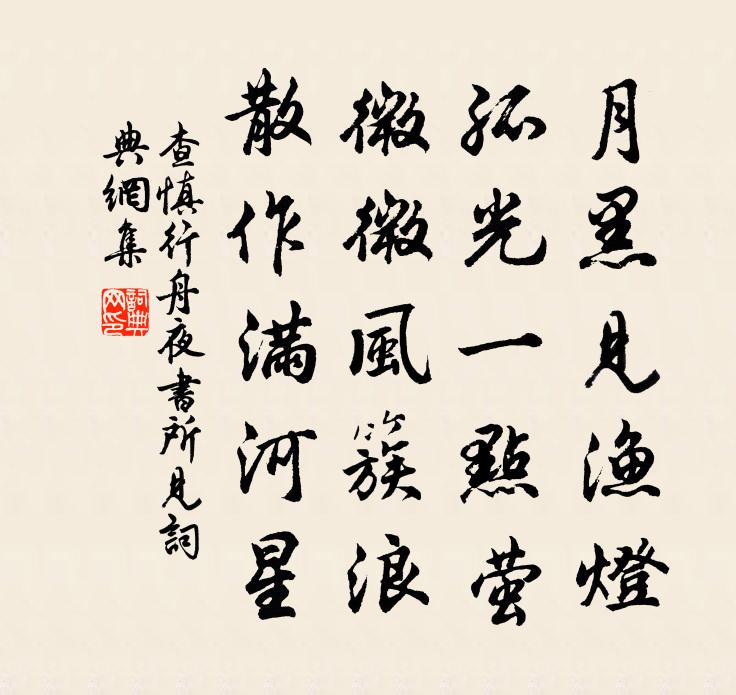 月黑見漁燈
孤光一點萤
微微風簇浪
散作滿河星
查慎行舟夜書所見詞
典網集
詞典
网印